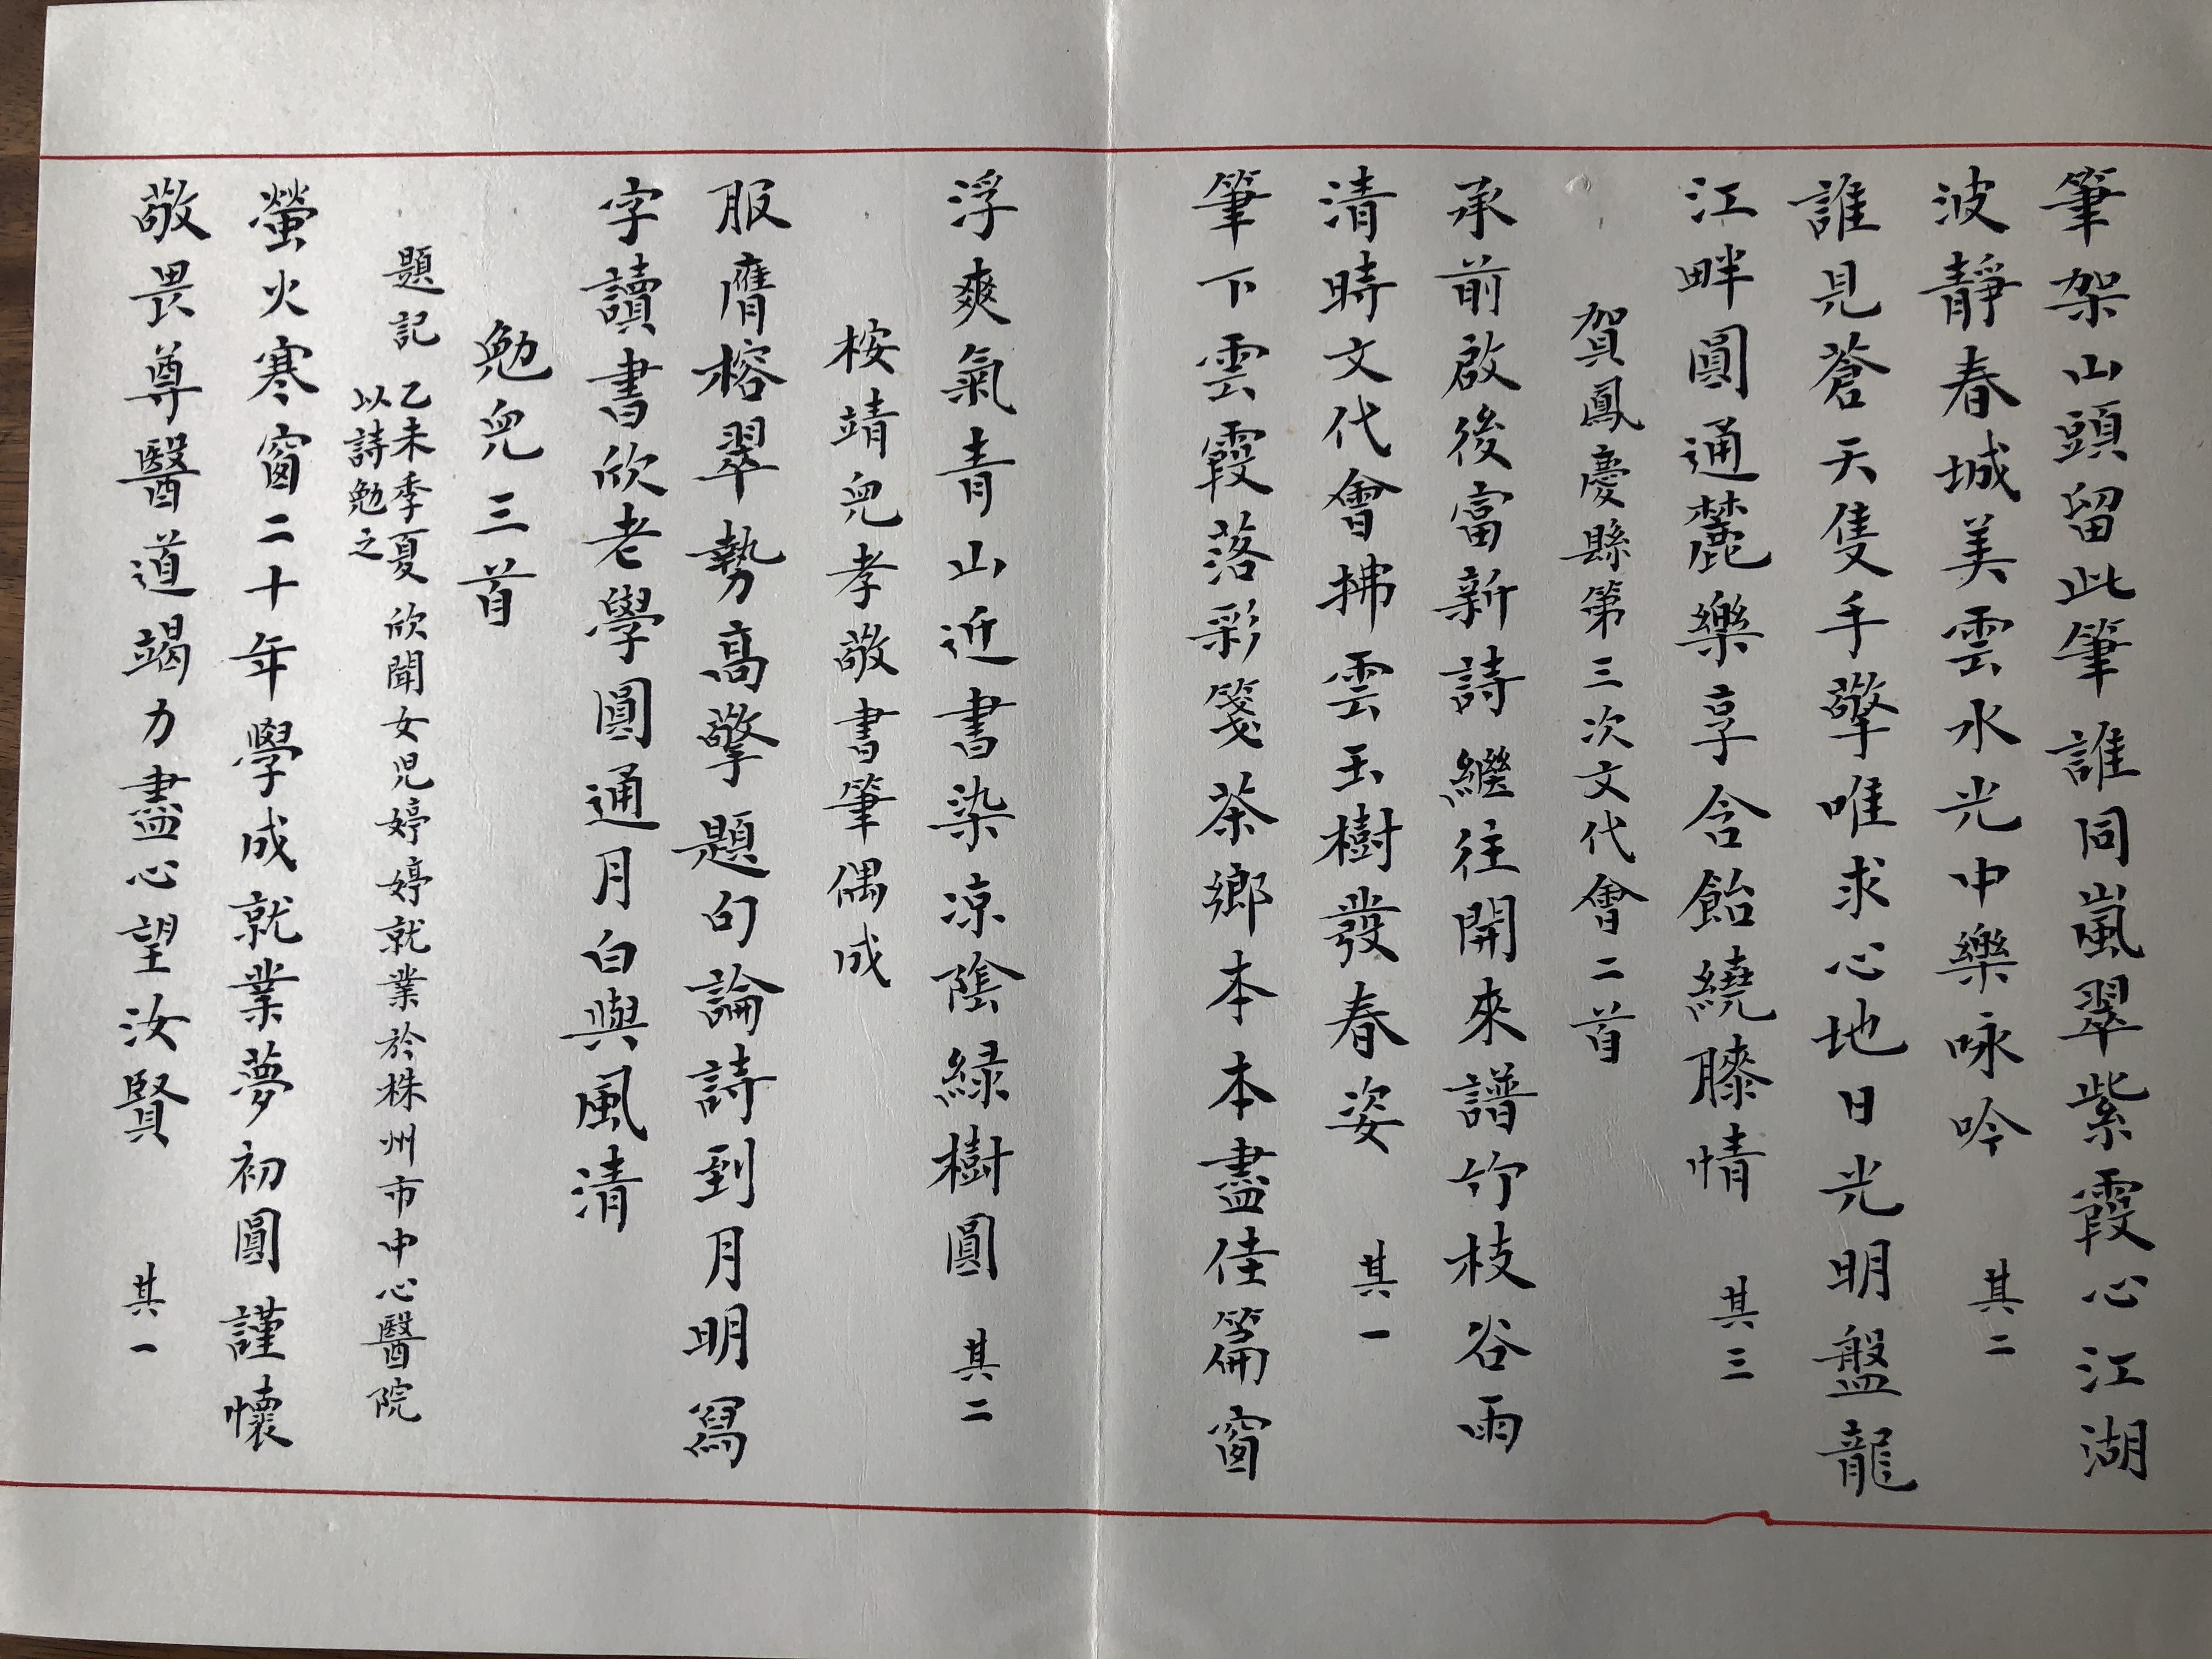 筆架山頭留此筆誰同嵐翠紫霞心江湖
波靜春城美雲水光中樂咏吟 其二
誰見蒼天隻手擎唯求心地日光明盤龍
江畔圓通麓樂享含飴繞膝情 其三
賀鳳慶縣第三次文代會二首
承前啟後富新詩繼往開來譜竹枝谷雨
清時文代會拂雲玉樹發春姿 其一
筆下雲霞落彩箋茶鄉本本盡佳篇窗
浮爽氣青山近書染涼陰緑樹圓 其二
桉靖兒孝敬書筆偶成
服膺榕翠勢高擎題句論詩到月明寫
字讀書欣老學圓通月白與風清
勉兒三首
題記 乙未季夏欣聞女児婷婷就業於株州市中心醫院
以詩勉之
螢火寒窗二十年學成就業夢初圓謹懷
敬畏尊醫道竭力盡心望汝賢 其一